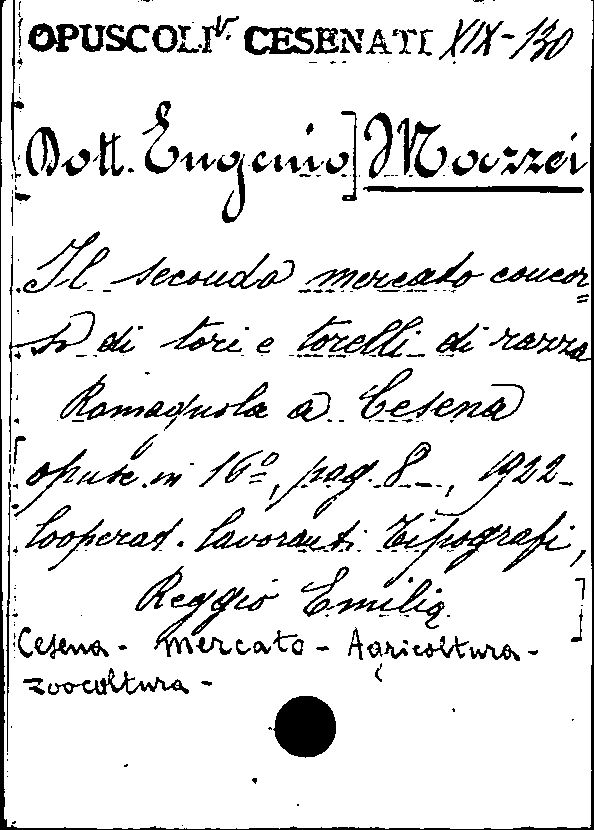 OPUSCOLI V. CESENATI XIX-130
[Dott. Eugenio] Mazzei
Il secondo mercato concor=
so di tori e torelli di razza
Romagnola a Cesena
opusc. in 16º, pag. 8 -, 1922 -
Cooperat. lavoranti Tipografi,
Reggio Emilia]
Cesena - Mercato - Agricoltura -
zoocoltura -